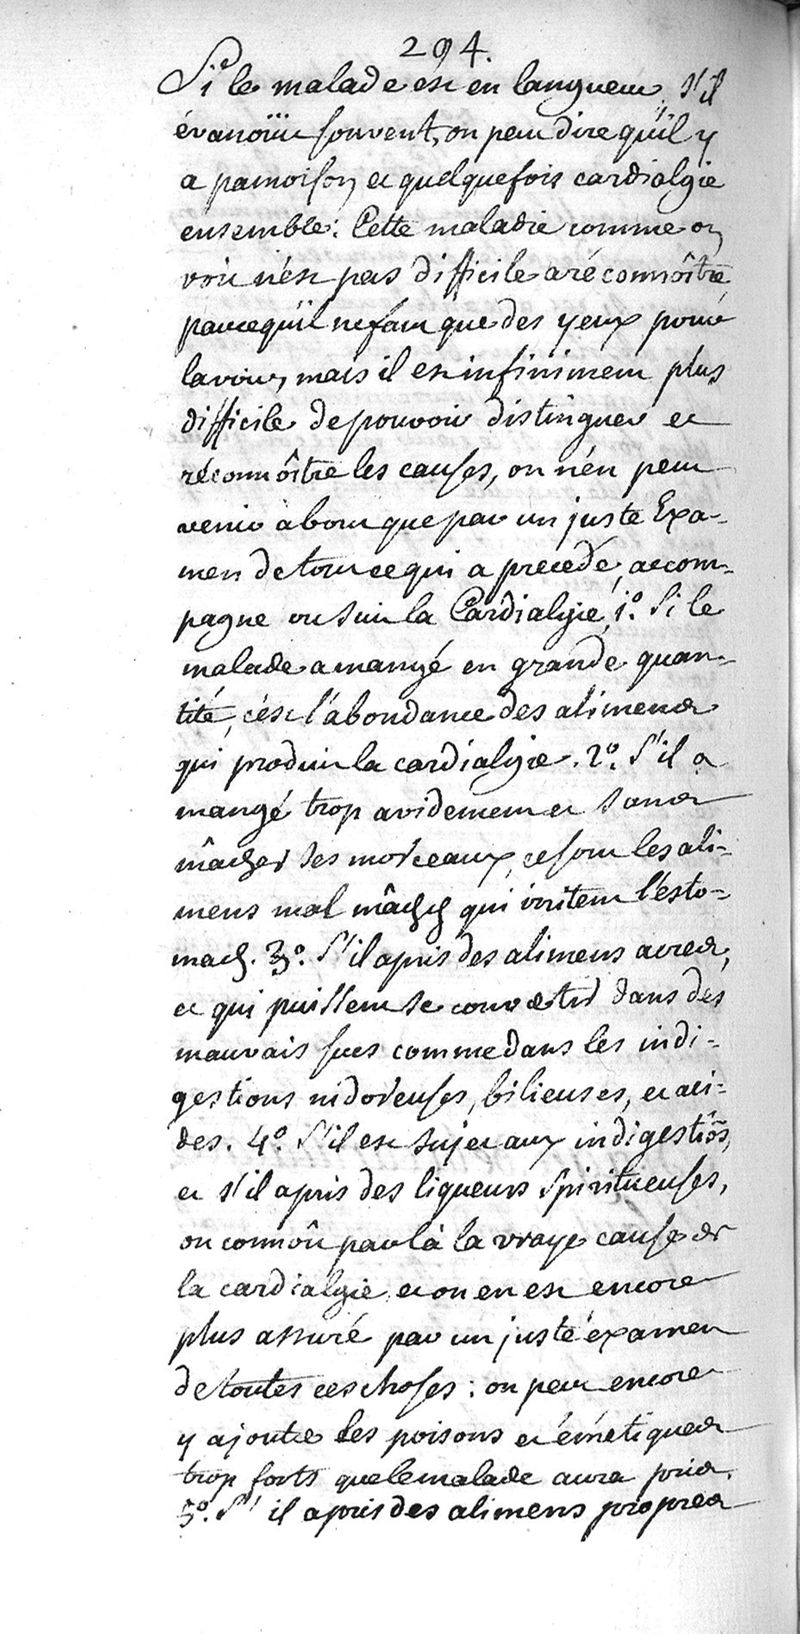 294.
Si le malade est en langueur, s'il
évanoüit souvent, on peut dire qu'il y
a pamoison et quelquefois cardialgie
ensemble: Cette maladie comme on
voit n'est pas difficile a réconnoître
parcequ'il ne faut que des yeux pour
la voir, mais il est infiniment plus
difficile de pouvoir distinguer et
réconnoître les causes, on n'en peut
venir à bout que par un juste Exa-
men de tout ce qui a precedé, accom-
pagne ou suit la Cardialgie, 1º. Si le
malade a mangé en grande quan-
tité, c'est l'abondance des alimens
qui produit la cardialgie. 2º. S'il a
mangé trop avidement et sans
mâcher ses morceaux, ce sont les ali-
mens mal mâchés qui irritent l'esto-
mach. 3º. S'il a pris des alimens acres,
et qui puissent se convertir dans des
mauvais sucs comme dans les indi-
gestions nidoreuses, bilieuses, et aci-
des. 4º. S'il est sujet aux indigestiõs,
et s'il a pris des liqueurs spiritueuses,
on connoît par là la vraye cause de
la cardialgie, et on en est encore
plus assuré par un juste examen
de toutes ces choses: on peut encore
y ajouter les poisons et émetiques
trop forts que le malade aura pris.
5º. S'il a pris des alimens propres